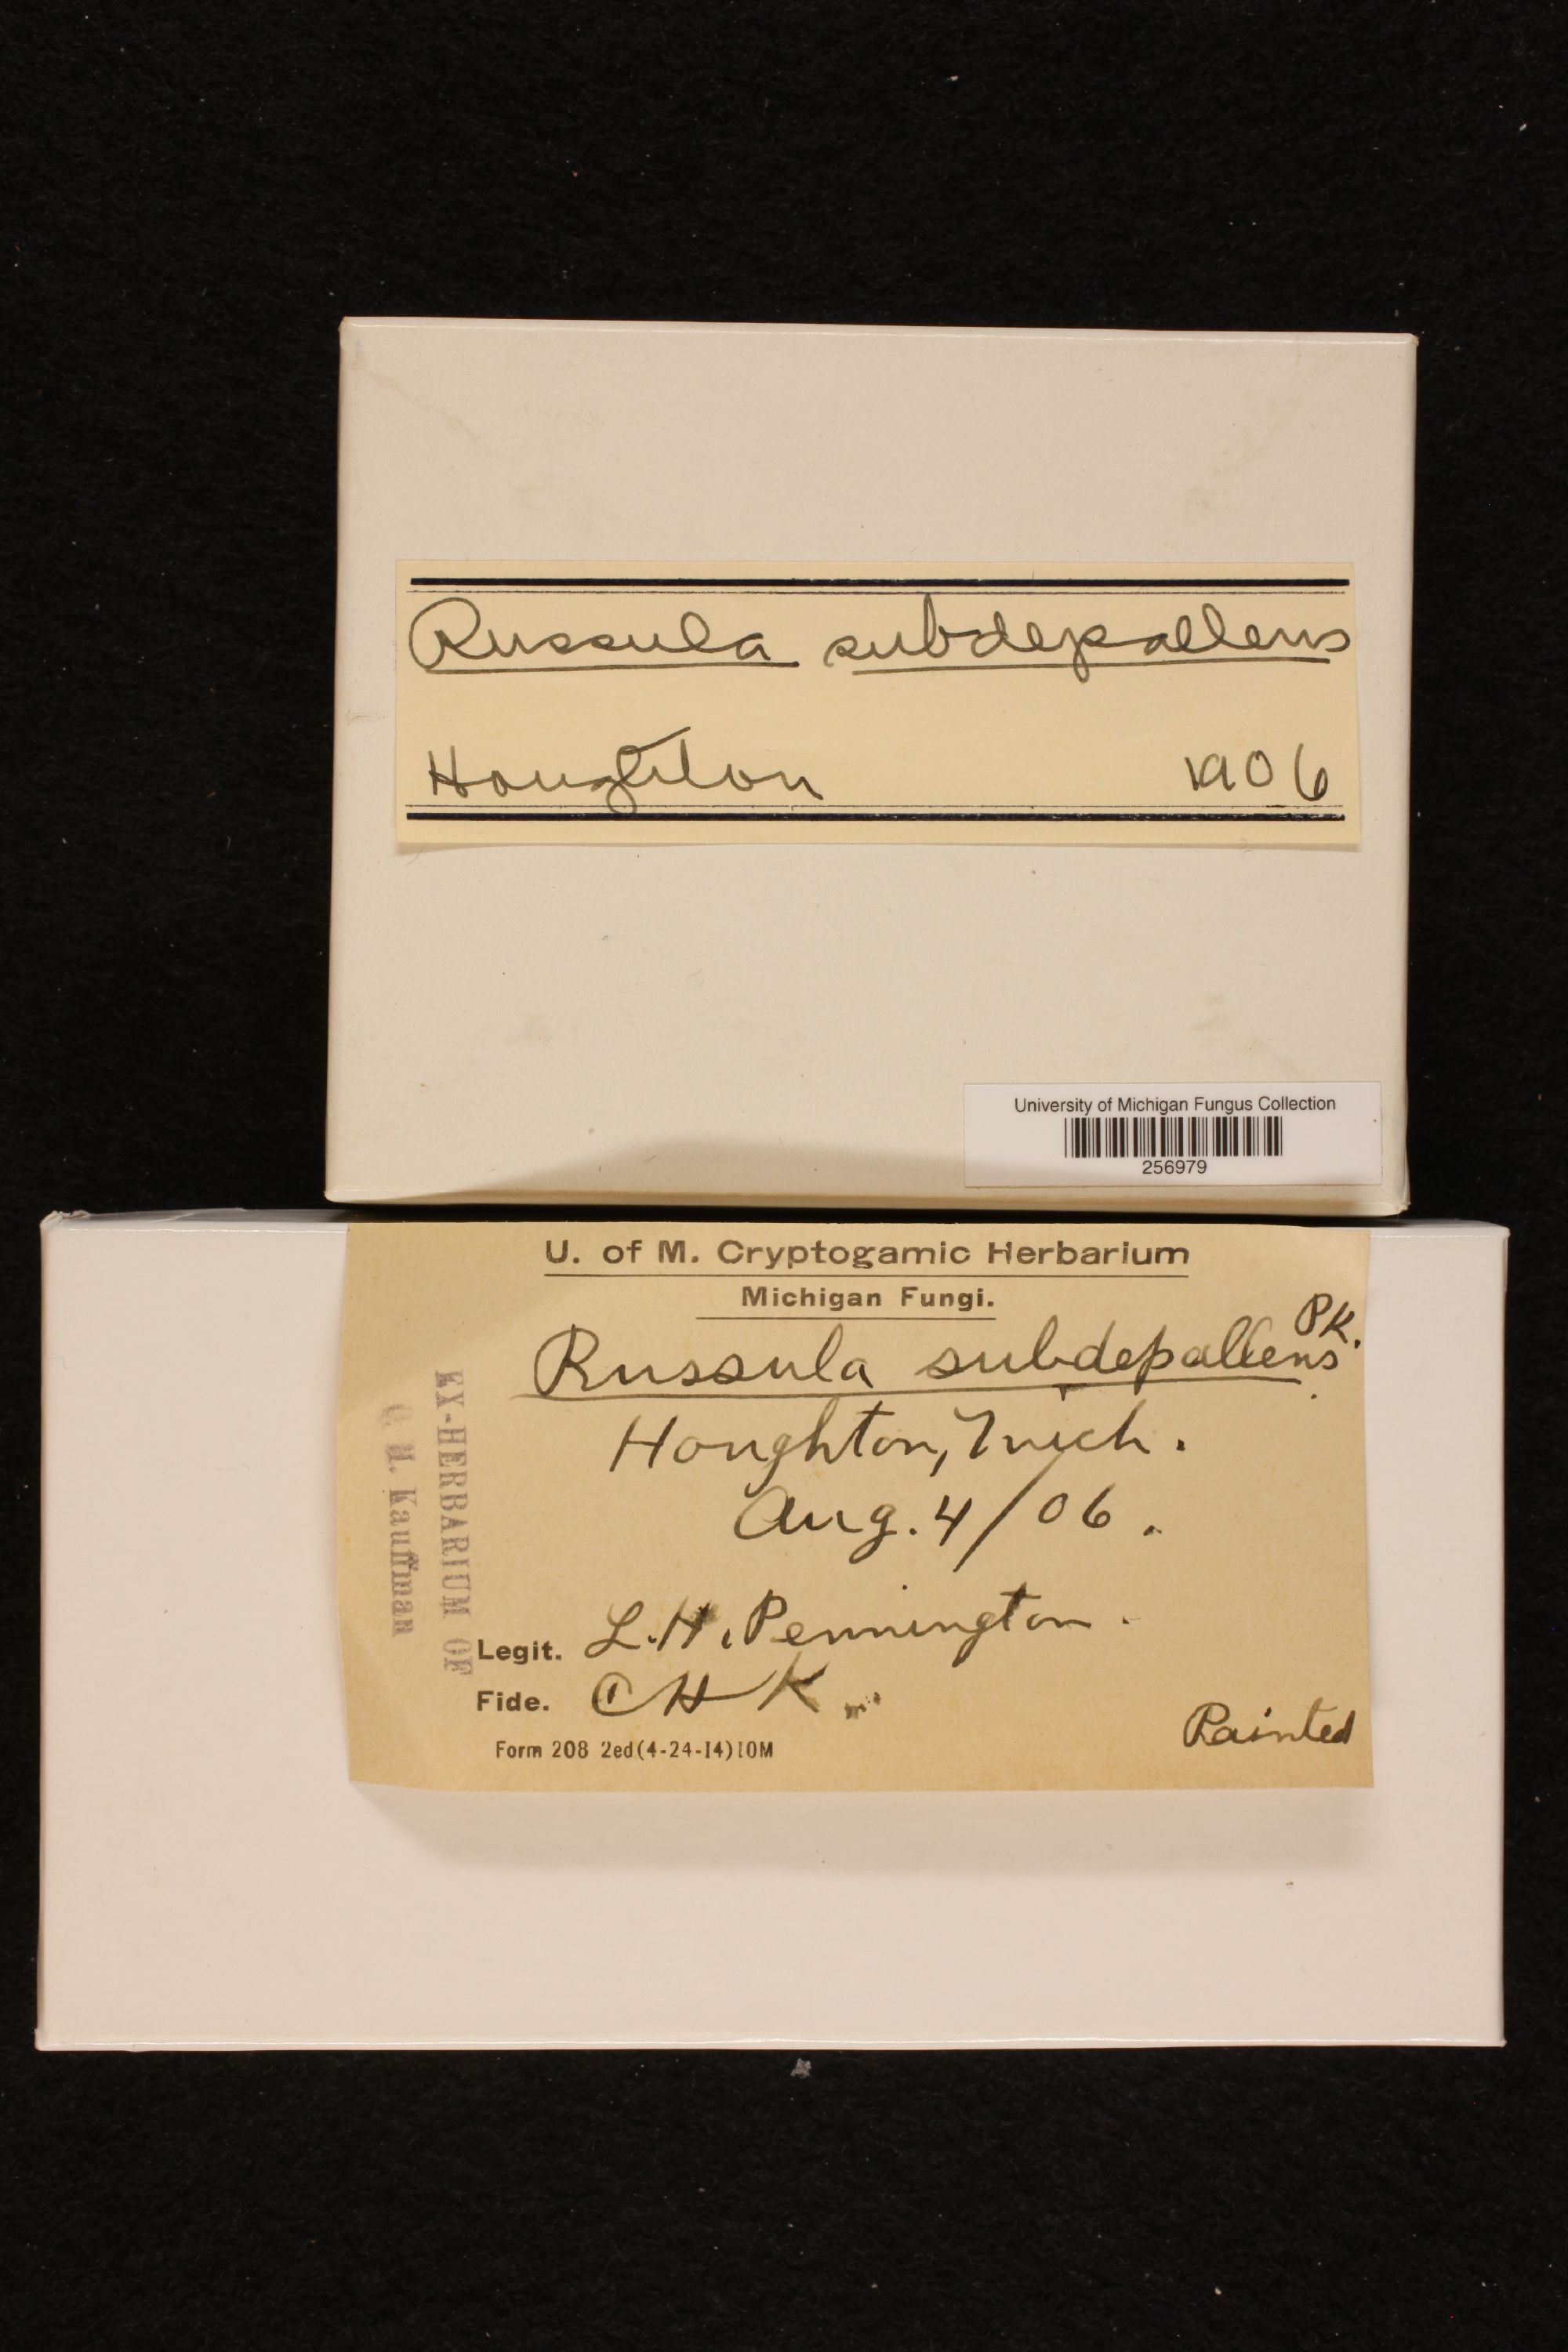 Russula subdepallens
Houghton 1906
University of Michigan Fungus Collection
256979
U. of M. Cryptogamic Herbarium
Michigan Fungi.
Russula subdepallens Pk.
Houghton, Mich.
Aug. 4/06.
Legit. L. H. Pennington.
Fide. CHK
Painted
Form 208 2ed(4-24-14)10M
EX-HERBARIUM OF
C. H. Kauffman